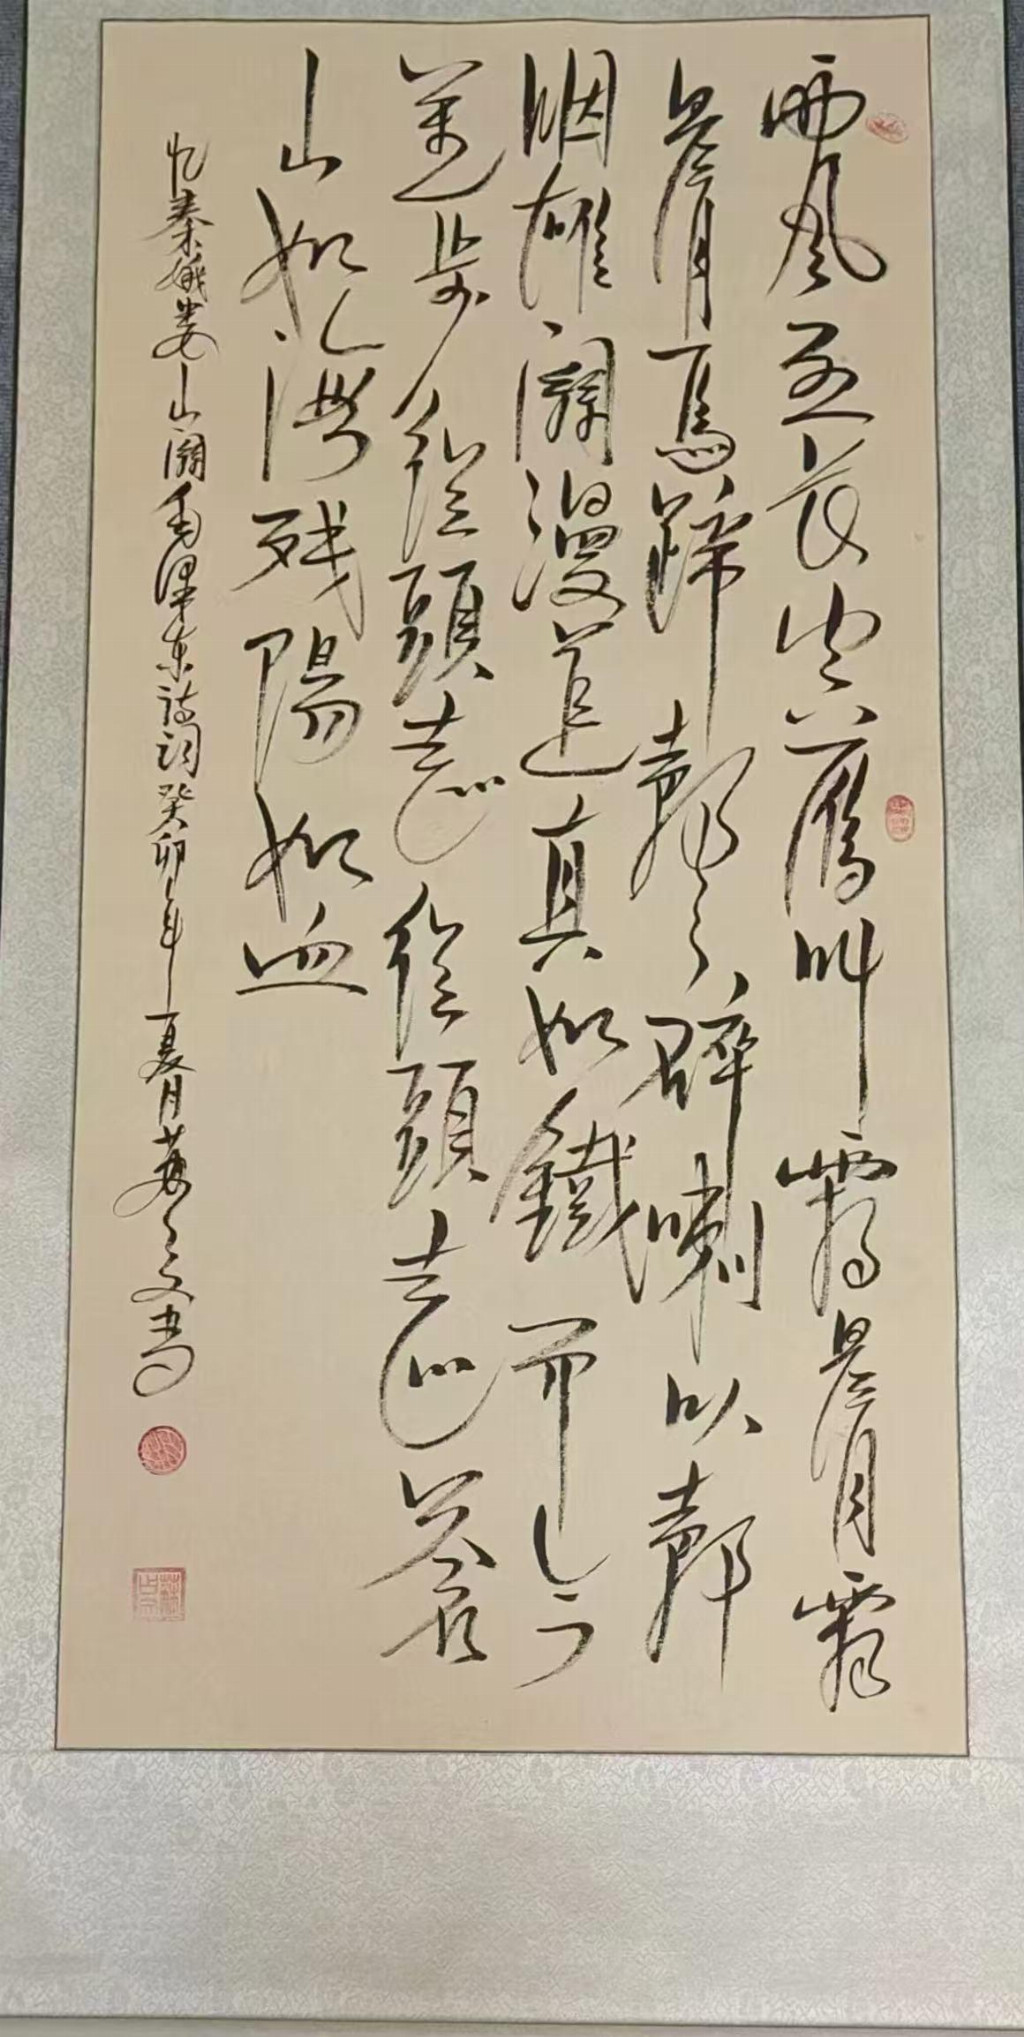 西風烈長空鴈叫霜晨月霜
晨月馬蹄聲碎喇叭聲
咽雄關漫道真如鐵而今
邁步從頭越從頭越蒼
山如海殘陽如血
忆秦娥娄山關毛澤东詩詞癸卯年夏月